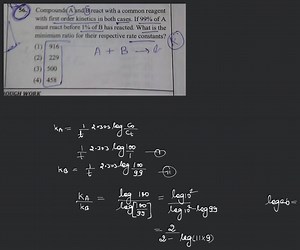 56. Compounds A and B react with a common reagent
with first order kinetics in both cases. If 99% of A
must react before 1% of B has reacted. What is the
minimum ratio for their respective rate constants?
(1) 916
A + B →
(2) 229
(3) 500
(4) 458
ROUGH WORK
kA = 1/t 2.303 log C0/Ct
1/t 2.303 log 100/1 — (I)
kB = 1/t 2.303 log 100/99 — (II)
kA/kB = log 100 / log[100/99] = log10² / log10² - log99
= 2 / 2 - log(11×9)